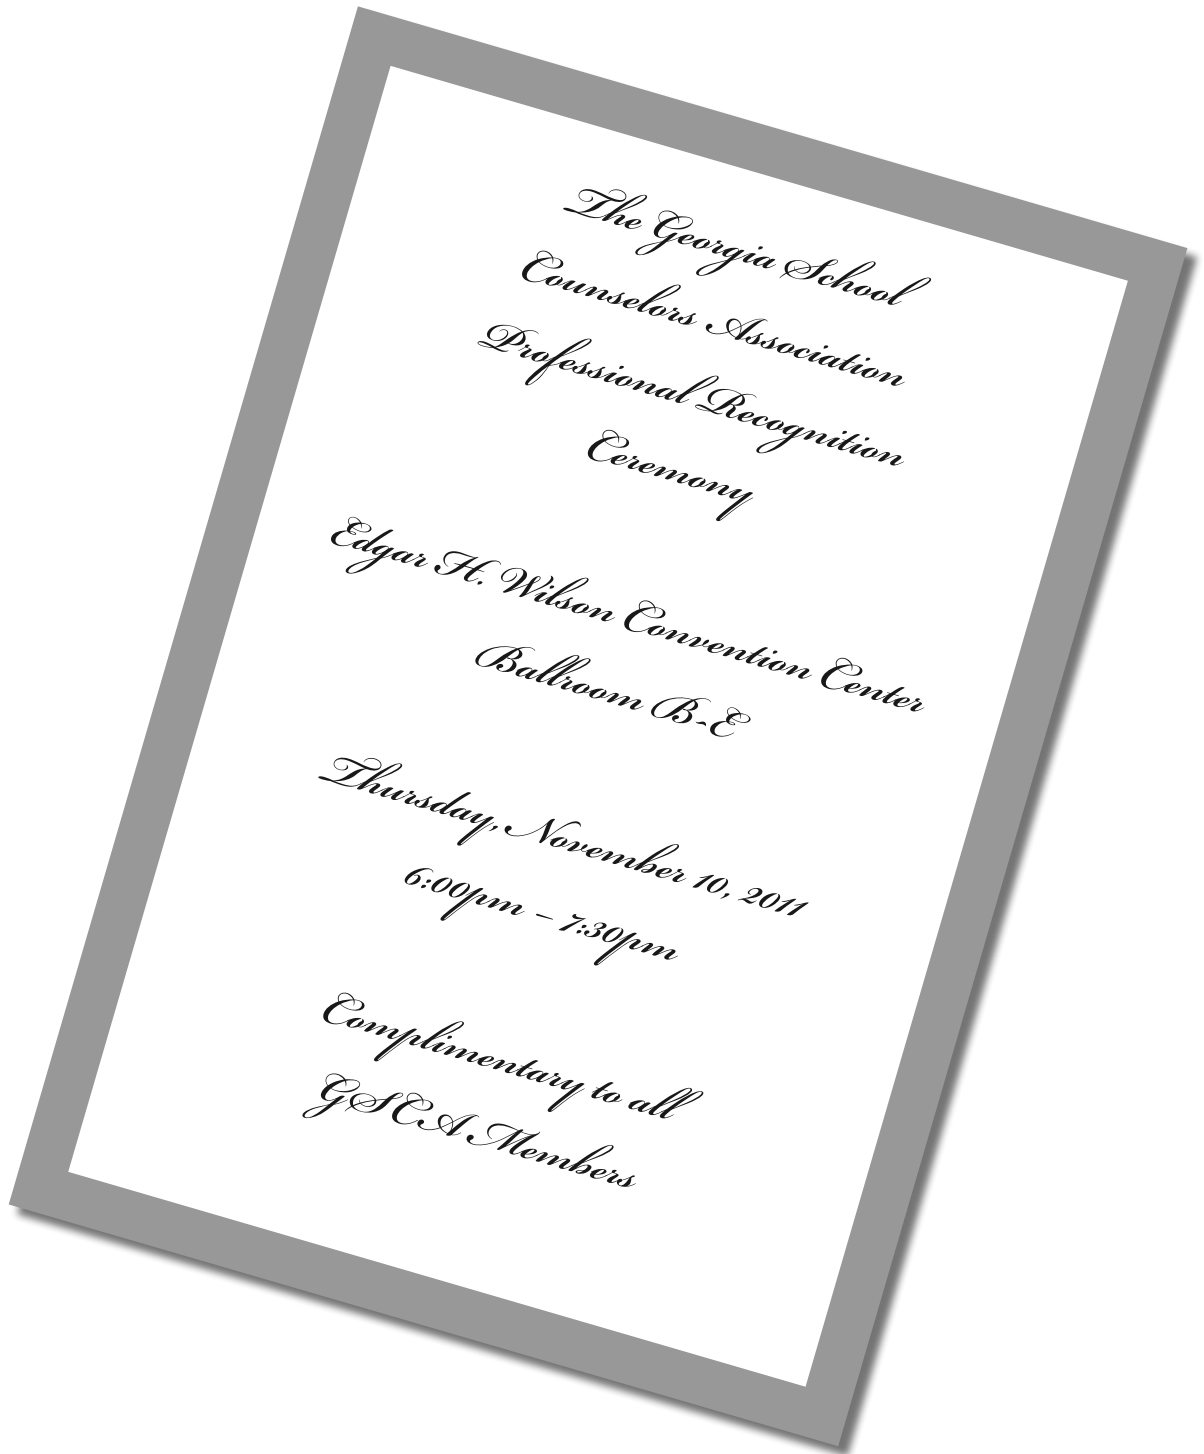 The Georgia School
Counselors Association
Professional Recognition
Ceremony
Edgar H. Wilson Convention Center
Ballroom B-E
Thursday, November 10, 2011
6:00pm – 7:30pm
Complimentary to all
GSCA Members